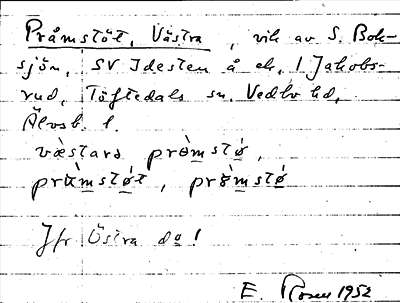 Pråmstöt, Västra, vik av S. Bok-
sjön, SV Idesten å ek. 1 Jakobs-
rud, Töftedals sn. Vedbo hd,
Älvsb. l.
væ̀stara prø̀mstǿ,
prʉ̀mstǿt, prö̀mstǿ
Jfr Östra do!
E. Rosen 1952